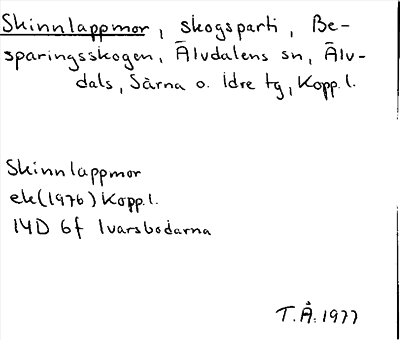 Skinnlappmor, skogsparti, Be-
sparingsskogen, Älvdalens sn, Älv-
dals, Särna o. Idre tg, Kopp. l.
Skinnlappmor
ek (1976) Kopp. l.
14D 6f Ivarsbodarna
T.Å. 1977